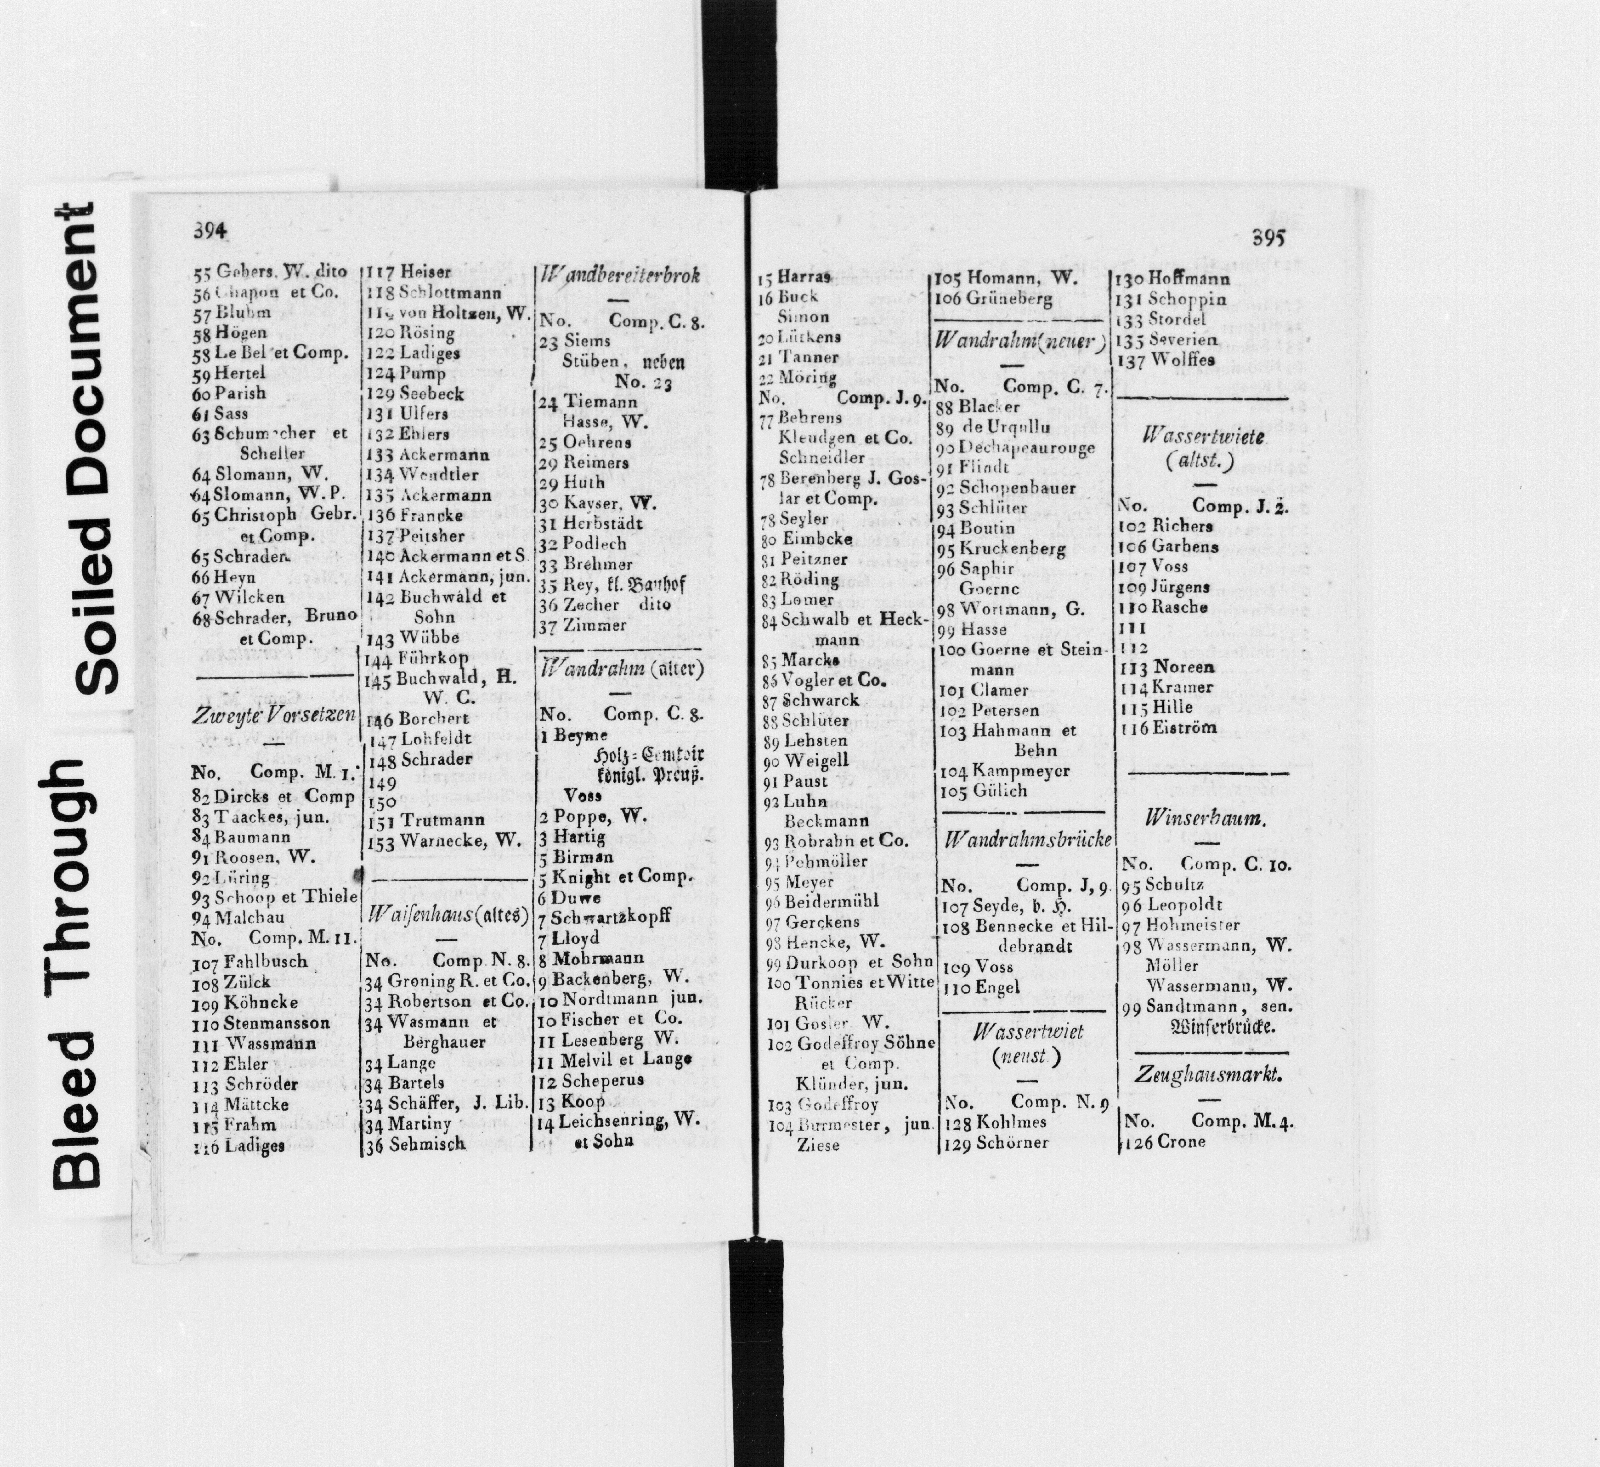 Bleed Through Soiled Document
394
55 Gebers, W. dito
56 Chapon et Co.
57 Bluhm
58 Högen
58 Le Bel et Comp.
59 Hertel
60 Parish
61 Sass
63 Schumacher et
Scheller
64 Slomann, W.
64 Slomann, W. P.
65 Christoph Gebr.
et Comp.
65 Schrader
66 Heyn
67 Wilcken
68 Schrader, Bruno
et Comp.
Zweyte Vorsetzen
No. Comp. M. 1.
82 Dircks et Comp
83 Taackes, jun.
84 Baumann
91 Roosen, W.
92 Lüring
93 Schoop et Thiele
94 Malchau
No. Comp. M. 11.
107 Fahlbusch
108 Zülck
109 Köhncke
110 Stenmansson
111 Wassmann
112 Ehler
113 Schröder
114 Mättcke
115 Frahm
116 Ladiges
117 Heiser
118 Schlottmann
119 von Holtzen, W.
120 Rösing
122 Ladiges
124 Pump
129 Seebeck
131 Ulfers
132 Ehlers
133 Ackermann
134 Wendtler
135 Ackermann
136 Francke
137 Peitsher
140 Ackermann et S
141 Ackermann, jun.
142 Buchwald et
Sohn
143 Wübbe
144 Führkop
145 Buchwald, H.
W. C.
146 Borchert
147 Lohfeldt
148 Schrader
149
150
151 Trutmann
153 Warnecke, W.
Waisenhaus (altes)
No. Comp. N. 8.
34 Groning R. et Co.
34 Robertson et Co.
34 Wasmann et
Berghauer
34 Lange
34 Bartels
34 Schäffer, J. Lib.
34 Martiny
36 Sehmisch
Wandbereiterbrok
No. Comp. C. 8.
23 Siems
Stüben, neben
No. 23
24 Tiemann
Hasse, W.
25 Oehrens
29 Reimers
29 Huth
30 Kayser, W.
31 Herbstädt
32 Podlech
33 Brehmer
35 Rey, kl. Bauhof
36 Zecher dito
37 Zimmer
Wandrahm (alter)
No. Comp. C. 8.
1 Beyme
Holz-Comtoir
königl. Preuß.
Voss
2 Poppe, W.
3 Hartig
5 Birman
5 Knight et Comp.
6 Duwe
7 Schwartzkopff
7 Lloyd
8 Mohrmann
9 Backenberg, W.
10 Nordtmann jun.
10 Fischer et Co.
11 Lesenberg W.
11 Melvil et Lange
12 Scheperus
13 Koop
14 Leichsenring, W.
et Sohn
395
15 Harras
16 Buck
Simon
20 Lütkens
21 Tanner
22 Möring
No. Comp. J. 9.
77 Behrens
Kleudgen et Co.
Schneidler
78 Berenberg J. Gos-
lar et Comp.
78 Seyler
80 Eimbcke
81 Peitzner
82 Röding
83 Lomer
84 Schwalb et Heck-
mann
85 Marcks
86 Vogler et Co.
87 Schwarck
88 Schlüter
89 Lehsten
90 Weigell
91 Paust
92 Luhn
Beckmann
93 Robrahn et Co.
94 Pehmöller
95 Meyer
96 Beidermühl
97 Gerckens
98 Hencke, W.
99 Durkoop et Sohn
100 Tonnies et Witte
Rücker
101 Gosler W.
102 Godeffroy Söhne
et Comp.
Klünder, jun.
103 Godeffroy
104 Burmester, jun.
Ziese
105 Homann, W.
106 Grüneberg
Wandrahm (neuer)
No. Comp. C. 7.
88 Blacker
89 de Urqullu
90 Dechapeaurouge
91 Flindt
92 Schopenhauer
93 Schlüter
94 Boutin
95 Kruckenberg
96 Saphir
Goerne
98 Wortmann, G.
99 Hasse
100 Goerne et Stein-
mann
101 Clamer
102 Petersen
103 Hahmann et
Behn
104 Kampmeyer
105 Gülich
Wandrahmsbrücke
No. Comp. J, 9.
107 Seyde, b. H.
108 Bennecke et Hil-
debrandt
109 Voss
110 Engel
Wassertwiet
(neust.)
No. Comp. N. 9
128 Kohlmes
129 Schörner
130 Hoffmann
131 Schoppin
133 Stordel
135 Severien
137 Wolffes
Wassertwiete
(altst.)
No. Comp. J. 2.
102 Richers
106 Garbens
107 Voss
109 Jürgens
110 Rasche
111
112
113 Noreen
114 Kramer
115 Hille
116 Eiström
Winserbaum.
No. Comp. C. 10.
95 Schultz
96 Leopoldt
97 Hohmeister
98 Wassermann, W.
Möller
Wassermann, W.
99 Sandtmann, sen.
Winserbrücke.
Zeughausmarkt.
No. Comp. M. 4.
126 Crone